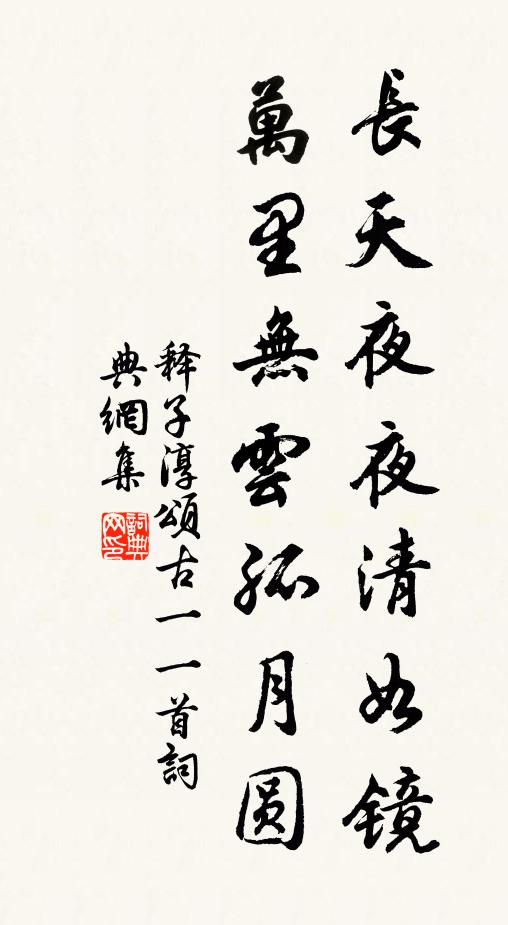 長天夜夜清如镜
萬里無雲孤月圆
释子淳頌古一一首詞
典網集
詞典网印